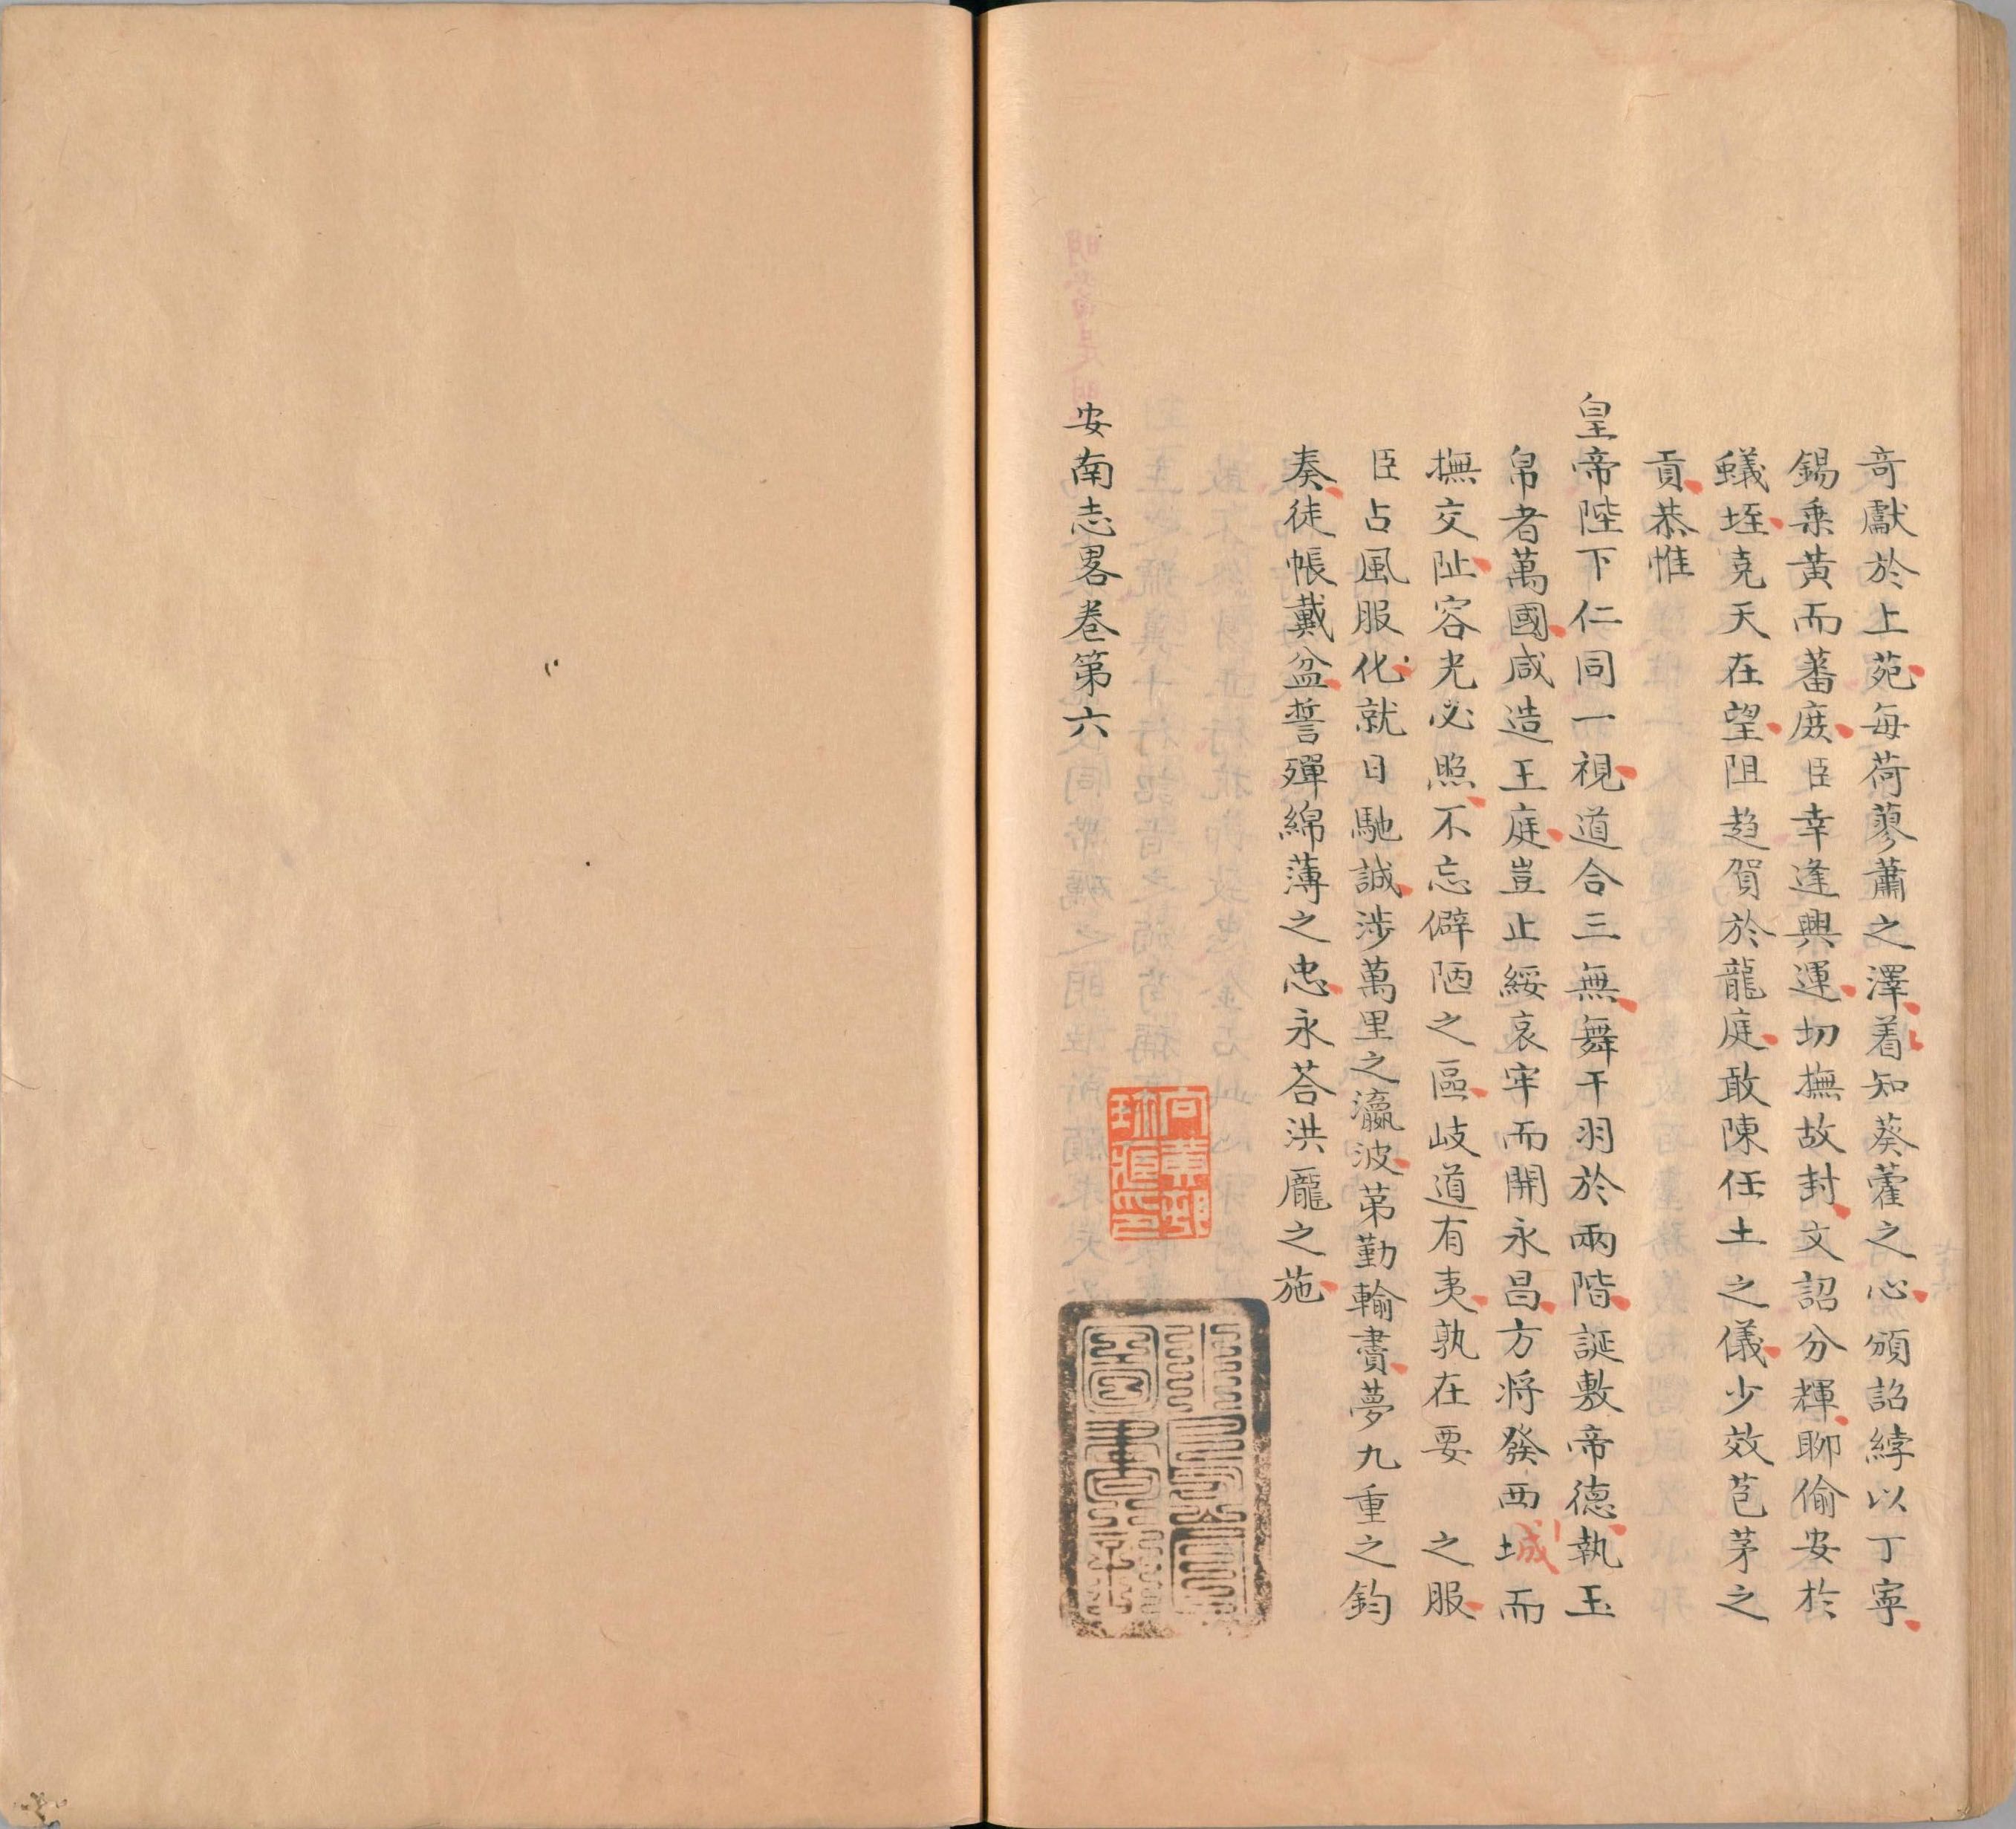 奇獻於上苑每荷蓼蕭之澤着知葵藿之心頒詔綍以丁寧
錫乗黄而蕃庶臣幸逢興運切撫故封文詔分輝聊偷安於
蟻垤堯天在望阻趋賀於龍庭敢陳任土之儀少效苞茅之
貢恭惟
皇帝陛下仁同一視道合三無舞干羽於兩階誕敷帝德執玉
帛者萬國咸造王庭豈止綏哀牢而開永昌方将發西城而
撫交阯容光必照不忘僻陋之區岐道有夷孰在要 之服
臣占風服化就日馳誠涉萬里之瀛波苐勤輸賮夢九重之鈞
奏徒帳戴盆誓殫綿薄之忠永荅洪龐之施
安南志畧卷第六